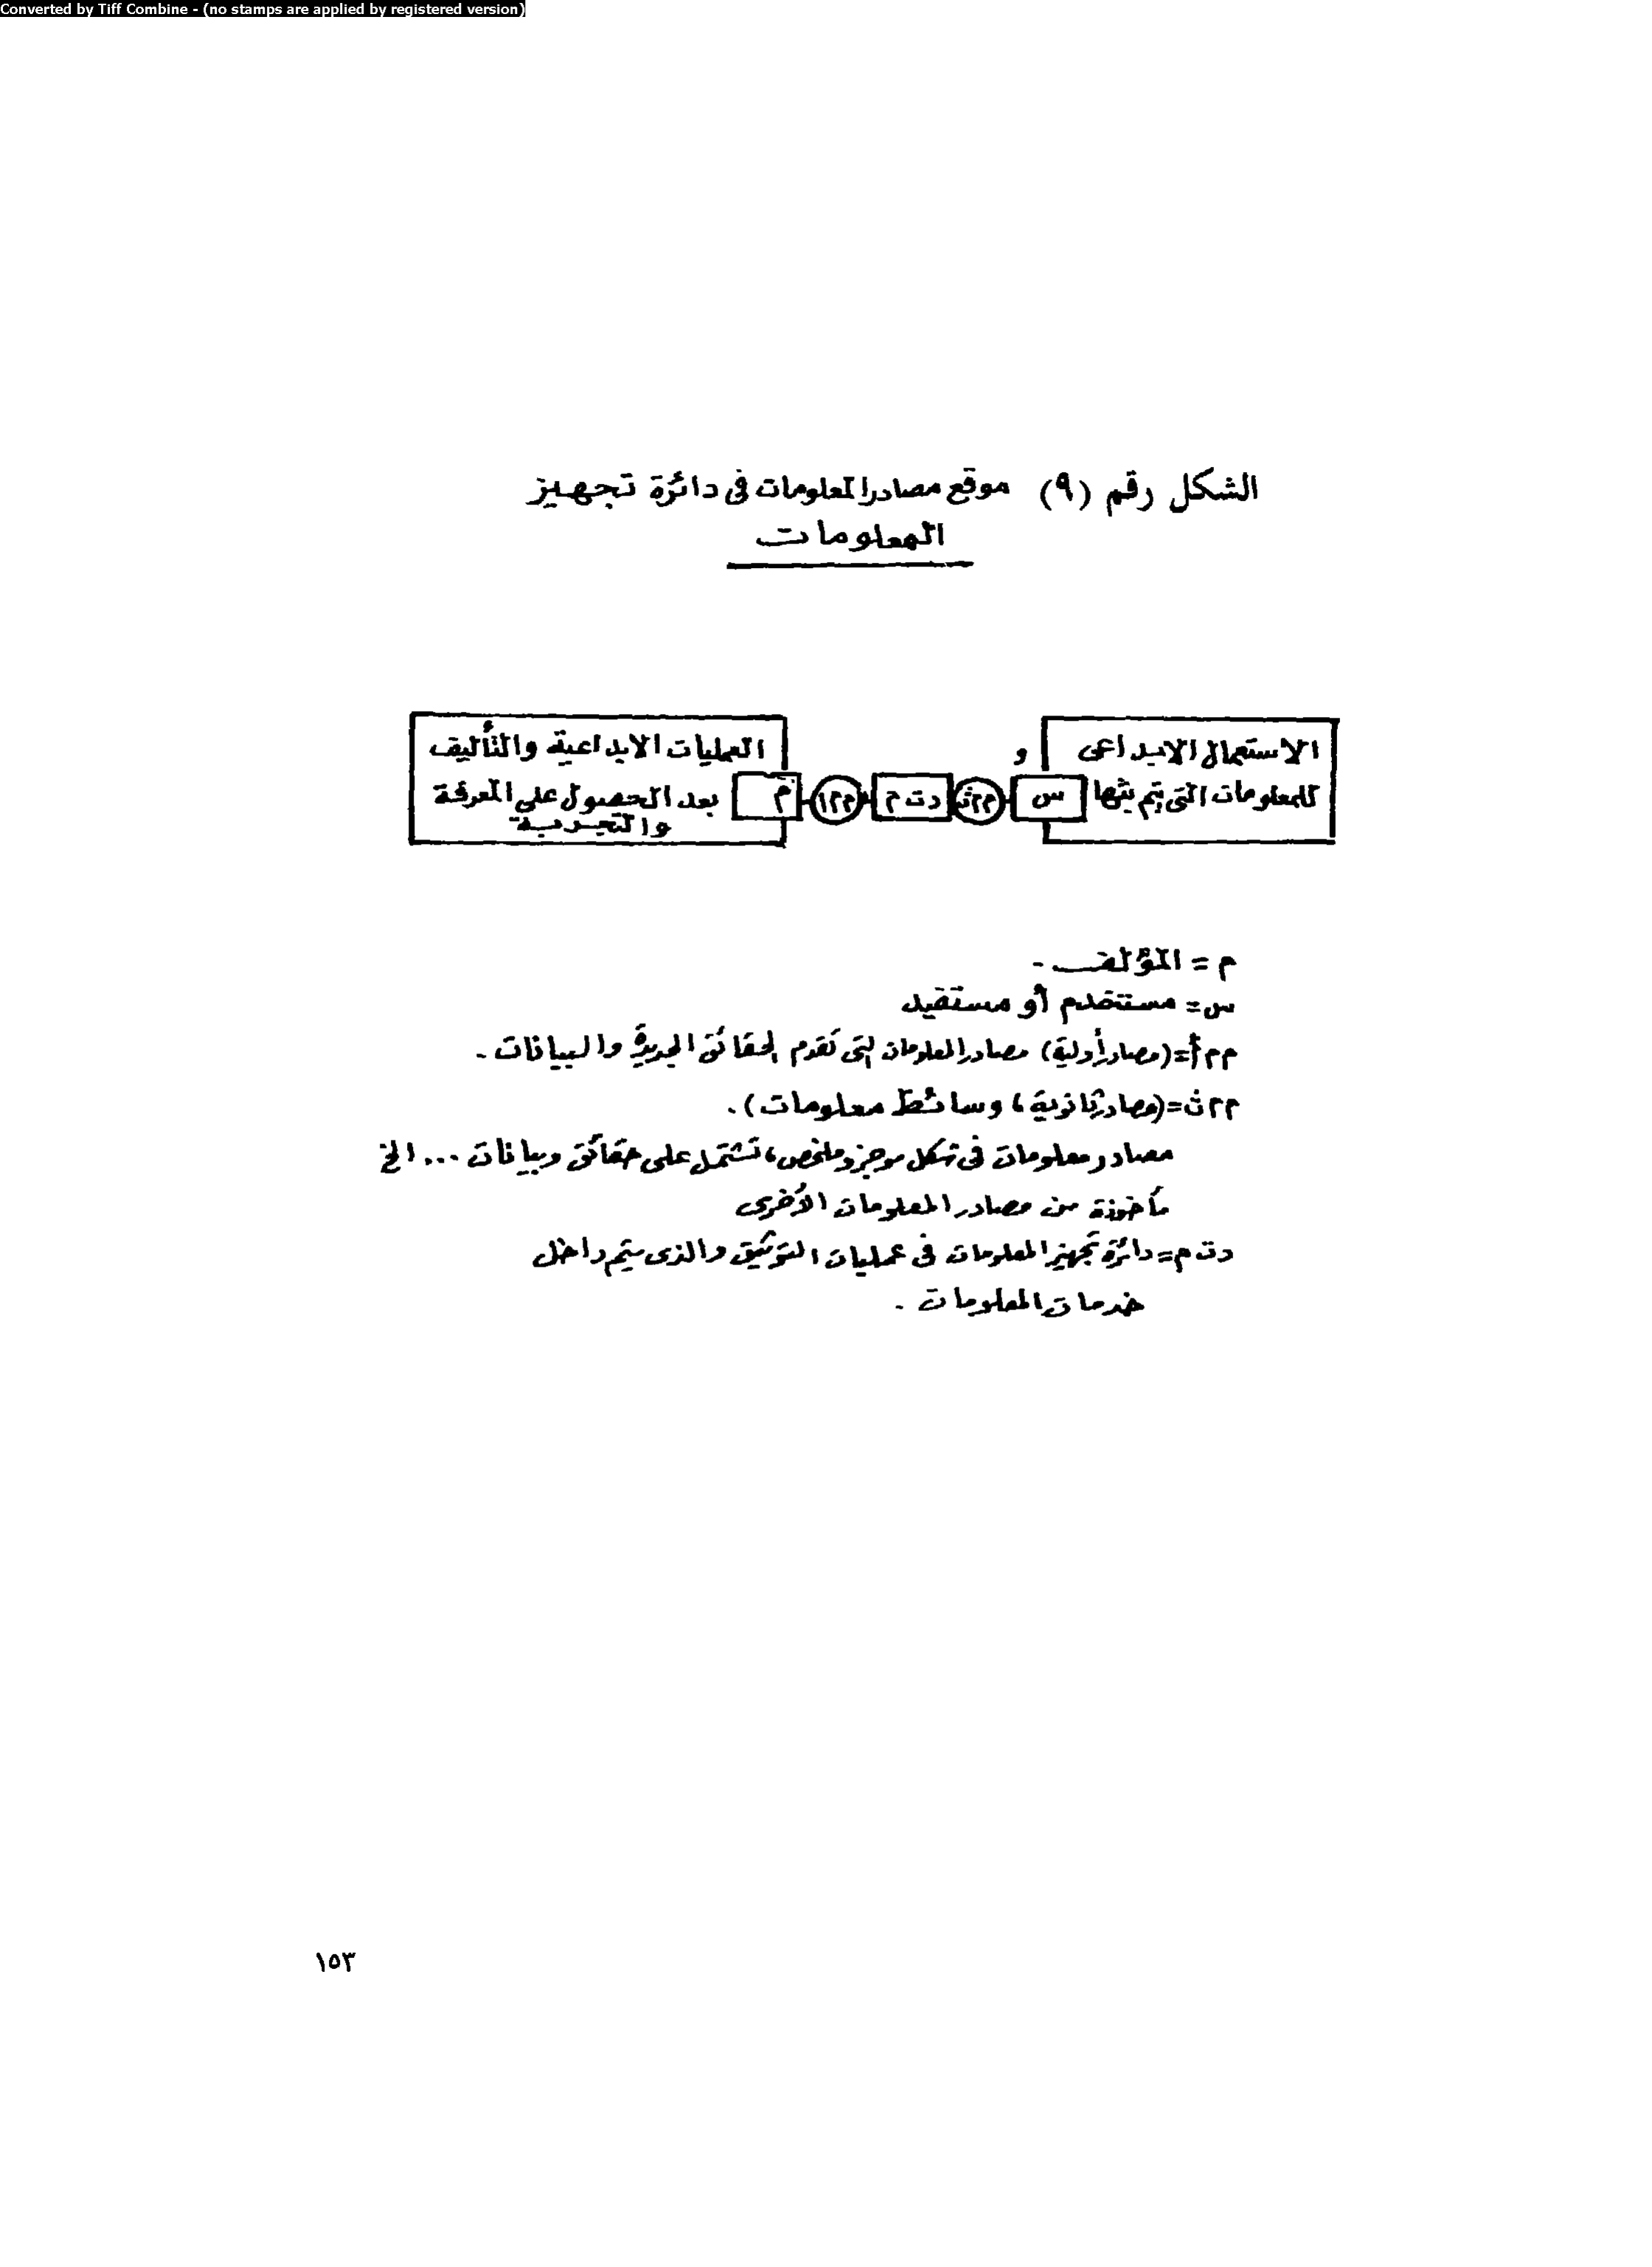 Converted by Tiff Combine - (no stamps are applied by registered version)
الشكل رقم (٩) موقع مصادر المعلومات فى دائرة تجهيز
المعلومات
الاستعمال الابداعى
للمعلومات التى يتم بثها
و
س
م م ث
د ت م
م م أ
م
العمليات الابداعية والتأليف
بعد الحصول على المعرفة
والتجربة
م = المؤلف -
س = مستخدم أو مستفيد
م م أ = (مصادر أولية) مصادر المعلومات التى تقدم الحقائق الجديدة والبيانات .
م م ث = (مصادر ثانوية ، وسائط معلومات) .
مصادر معلومات فى شكل موجز وملخص ، تشتمل على حقائق وبيانات ... الخ
مأخوذة من مصادر المعلومات الأخرى
د ت م = دائرة تجهيز المعلومات فى عمليات التوثيق والذى يتم داخل
خدمات المعلومات .
١٥٣